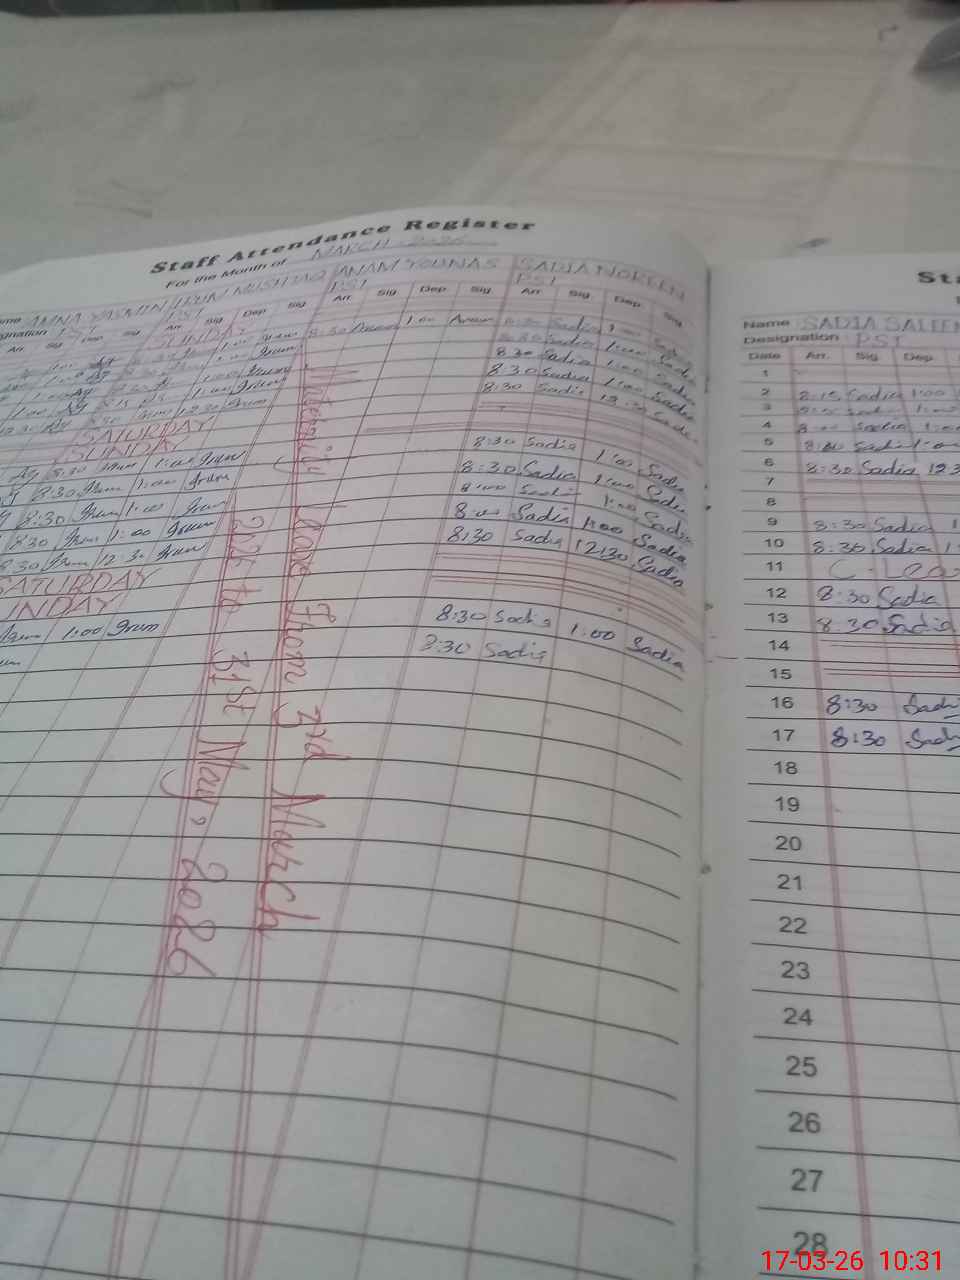 Staff Attendance Register
For the Month of MARCH - 2026
AMNA YASMIN IRUM MUSHTAQ ANAM YOUNAS SADIA NOREEN
PST PST PST PST
Arr. Sig Dep Arr Sig Dep Sig Arr Sig Dep Sig Arr Sig Dep Sig
SUNDAY
8:30 Anam 1:00 Anam 8:30 Sadia 1:00 Sadia
8:30 Sadia 1:00 Sadia
8:30 Sadia 1:00 Sadia
8:30 Sadia 1:00 Sadia
8:30 Sadia 12:30 Sadia
SATURDAY
SUNDAY
8:30 Irum 1:00 Irum 8:30 Sadia 1:00 Sadia
8:30 Irum 1:00 Irum 8:30 Sadia 1:00 Sadia
8:30 Irum 1:00 Irum 8:00 Sadia 1:00 Sadia
8:30 Irum 1:00 Irum 8:00 Sadia 1:00 Sadia
8:30 Irum 12:30 Irum 8:30 Sadia 12:30 Sadia
SATURDAY
UNDAY
Irum 1:00 Irum 8:30 Sadia 1:00 Sadia
8:30 Sadia
Maternity Leave From 3rd March
2026 to 31st May, 2026
Sta
Name SADIA SALEEN
Designation PST
Date Arr. Sig Dep.
1
2 8:15 Sadia 1:00
3 Sadia 1:00
4 8:00 Sadia 1:00
5 8:00 Sadia 1:00
6 8:30 Sadia 123
7
8
9 8:30 Sadia 1
10 8:30 Sadia 1
11 C. Lea
12 8:30 Sadia
13 8:30 Sadia
14
15
16 8:30 Sadi
17 8:30 Sad
18
19
20
21
22
23
24
25
26
27
28
17-03-26 10:31